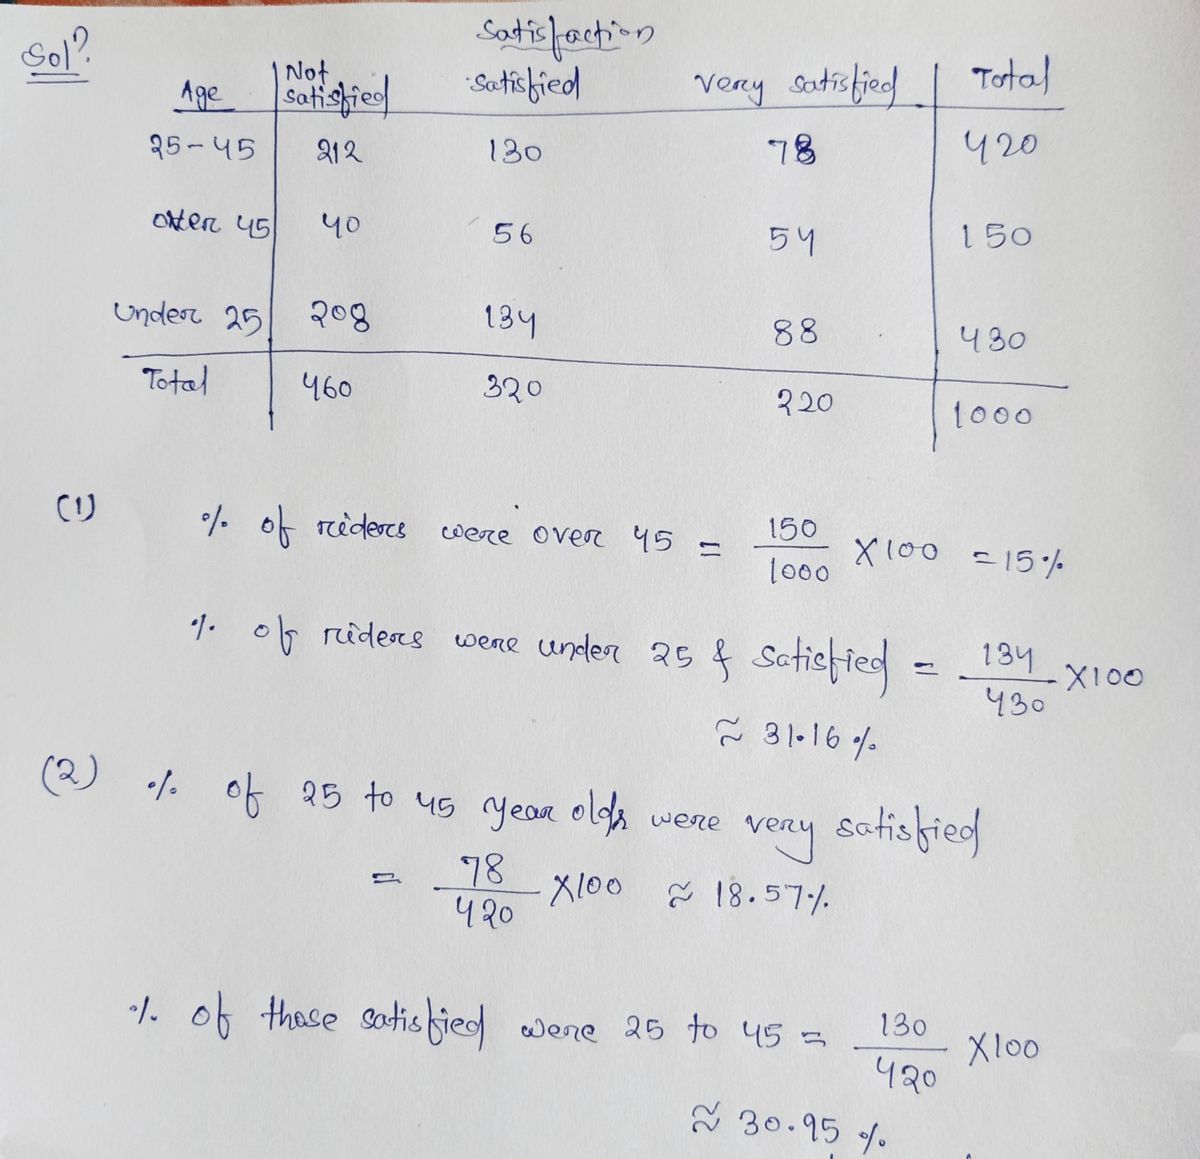 Solⁿ.
Satisfaction
Age | Not satisfied | satisfied | very satisfied | Total
25-45 | 212 | 130 | 78 | 420
over 45 | 40 | 56 | 54 | 150
Under 25 | 208 | 134 | 88 | 430
Total | 460 | 320 | 220 | 1000
(1) % of riders were over 45 = 150/1000 X100 = 15%
% of riders were under 25 & satisfied = 134/430 X100
≈ 31.16 %
(2) % of 25 to 45 year olds were very satisfied
= 78/420 X100 ≈ 18.57%
% of those satisfied were 25 to 45 = 130/420 X100
≈ 30.95 %